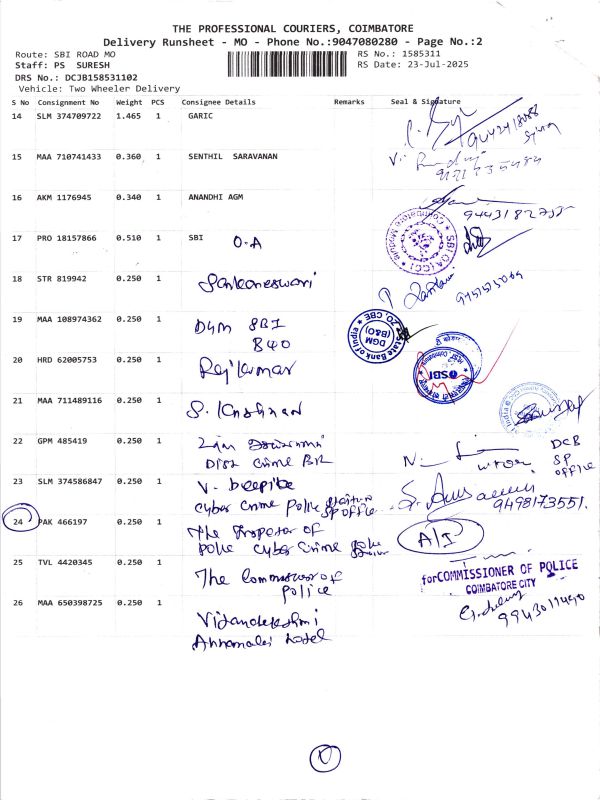 THE PROFESSIONAL COURIERS, COIMBATORE
Delivery Runsheet - MO - Phone No.:9047080280 - Page No.:2
Route: SBI ROAD MO
RS No.: 1585311
Staff: PS SURESH
RS Date: 23-Jul-2025
DRS No.: DCJB158531102
Vehicle: Two Wheeler Delivery
S No Consignment No Weight PCS Consignee Details Remarks Seal & Signature
14 SLM 374709722 1.465 1 GARIC
15 MAA 710741433 0.360 1 SENTHIL SARAVANAN
16 AKM 1176945 0.340 1 ANANDHI AGM
17 PRO 18157866 0.510 1 SBI O.A
SBI OA(CC)
18 STR 819942 0.250 1 Sankaneswari
19 MAA 108974362 0.250 1 DGM SBI
B&O
State Bank of India ZO, CBE
DGM
(B&O)
20 HRD 62005753 0.250 1 Rajkumar
SBI
21 MAA 711489116 0.250 1 S. Krishnan
22 GPM 485419 0.250 1
Dist Crime BR
DCB
SP
office
23 SLM 374586847 0.250 1 V. Deepika
Cyber Crime Police Station
SP office
9498173551.
24 PAK 466197 0.250 1 The Inspector of
Police Cyber Crime
A/I
25 TVL 4420345 0.250 1 The Commissioner of
Police
for COMMISSIONER OF POLICE
COIMBATORE CITY
26 MAA 650398725 0.250 1
Annamalai Hotel
9943011490